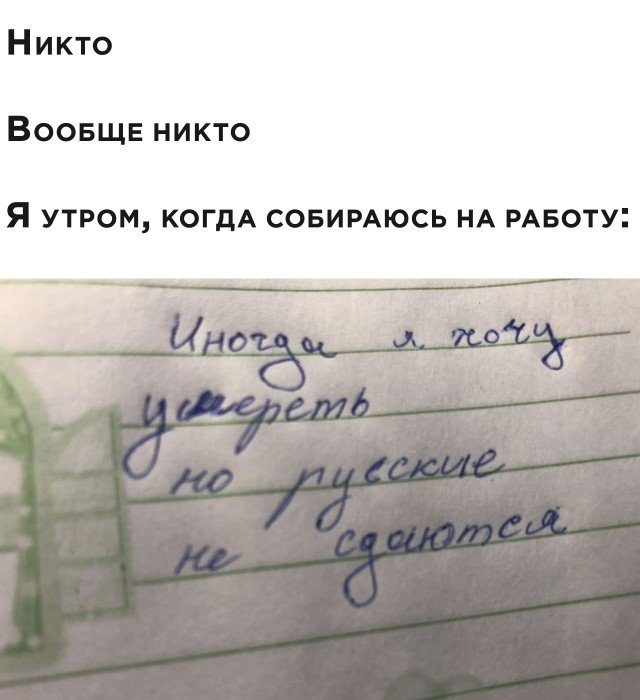 Никто
Вообще никто
Я утром, когда собираюсь на работу:
Иногда я хочу
умереть
но русские
не сдаются